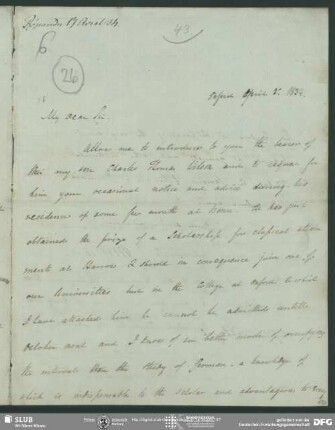 Répondu 17 Avril 34
43
6
26
Oxford April 3. 1834
My Dear Sir
Allow me to introduce to you the bearer of
this my son Charles Thomas and to request for
him your occasional notice and advice during his
residence of some few months at Bonn. He has just
obtained the prize of a Scholarship for classical attain
ments at Harrow & should in consequence join one of
our Universities but in the College at Oxford to which
I have attached him he cannot be admitted until
October next and I know of no better mode of occupying
the interval than the study of German a knowledge of
which is indispensable to the scholar and advantageous to
SLUB
DFG